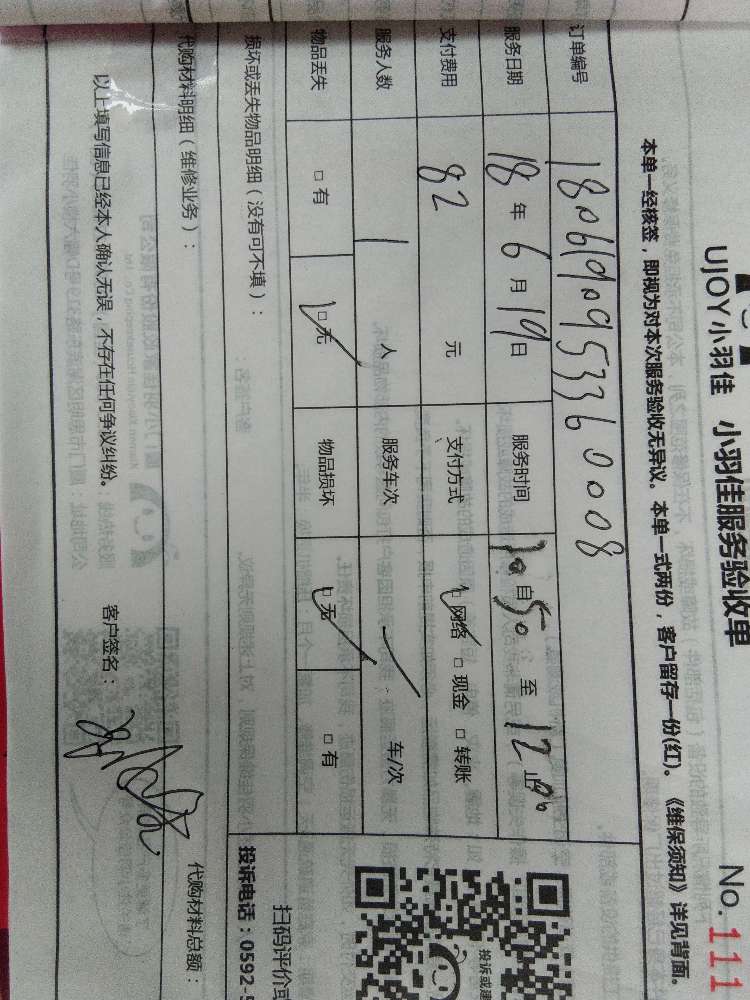 UJOY小羽佳 小羽佳服务验收单 No.111
本单一经核签，即视为对本次服务验收无异议。本单一式两份，客户留存一份(红)。《维保须知》详见背面。
订单编号 1806190953360008
服务日期 18年6月19日 服务时间 10 50 至 12
支付费用 82元 支付方式 网络 □现金 □转账
服务人数 1人 服务车次 车/次
物品丢失 □有 □无 物品损坏 □无 □有
损坏或丢失物品明细（没有可不填）：
代购材料明细（维修业务）： 代购材料总额：
以上填写信息已经本人确认无误，不存在任何争议纠纷。 客户签名：
投诉或建
扫码评价或
投诉电话：0592-5